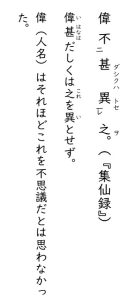 偉不ニ甚ダシクハ異トセレ之ヲ。(『集仙録』)
偉い甚はなはだしくは之これを異いとせず。
偉(人名)はそれほどこれを不思議だとは思わなかっ
た。